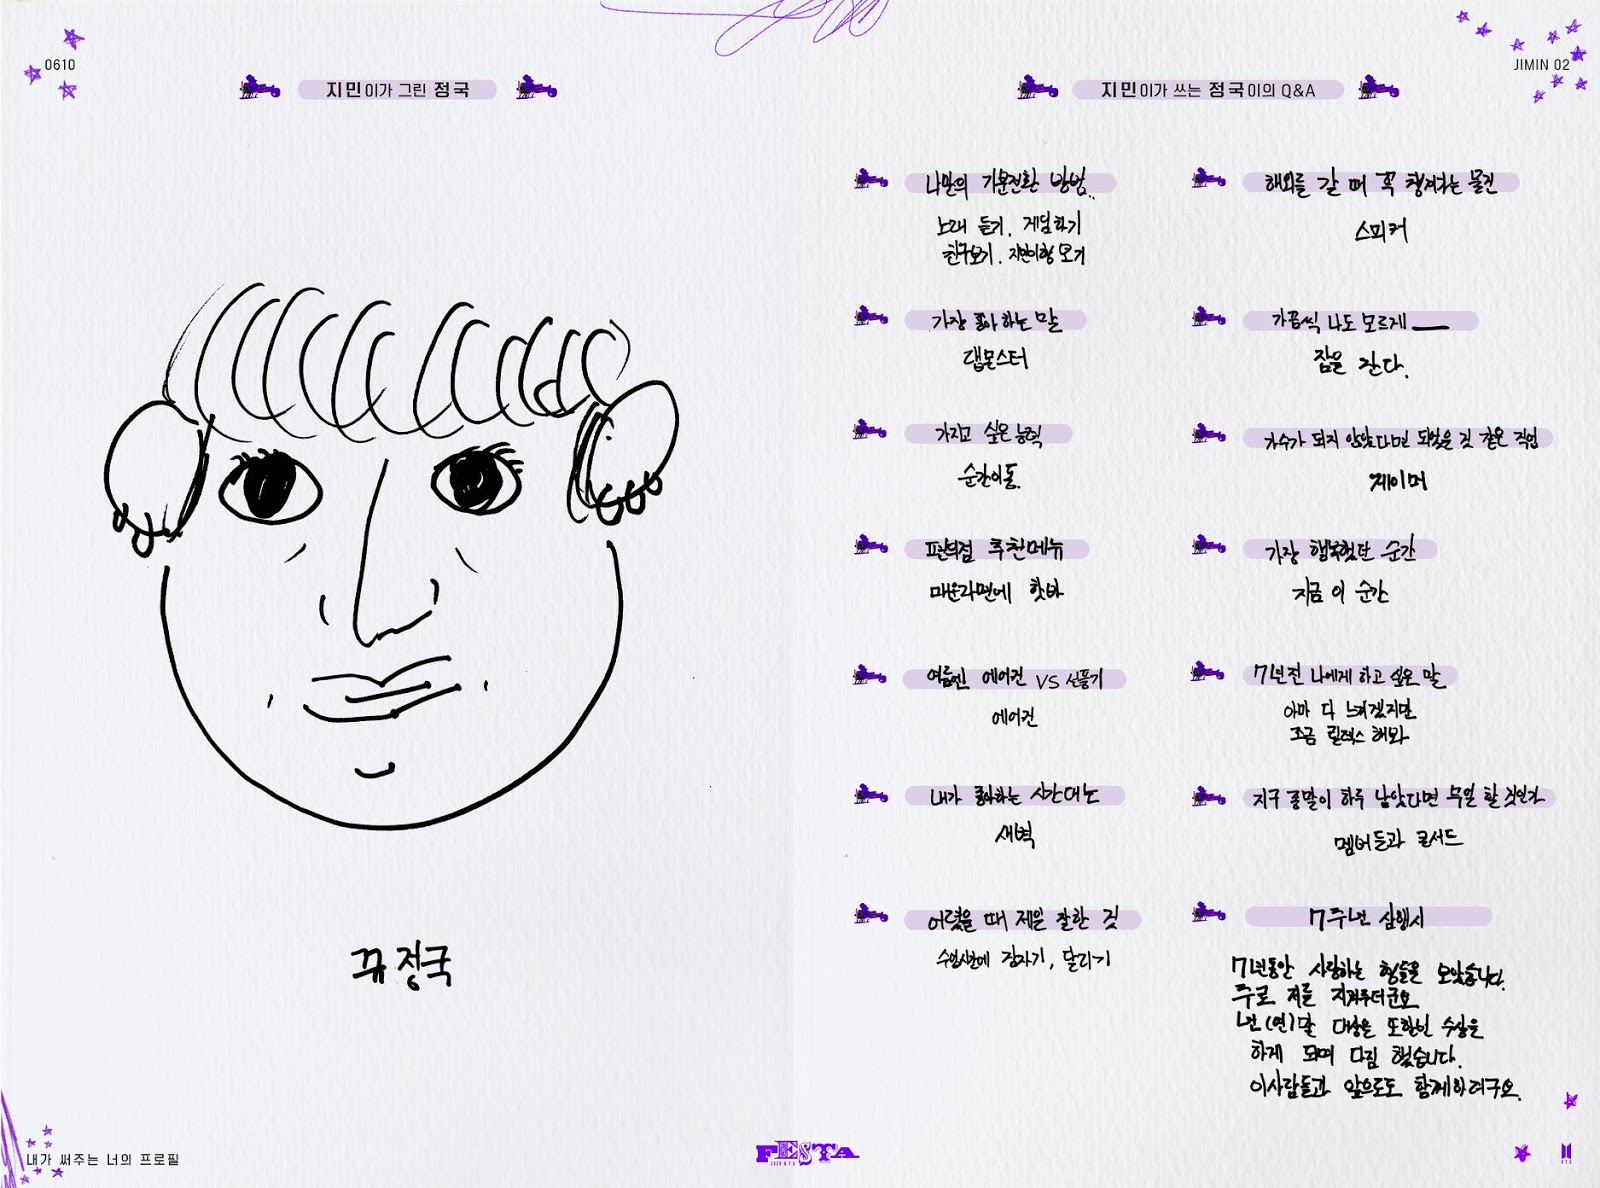 0610
지민이가 그린 정국
뀨 정국
내가 써주는 너의 프로필
JIMIN 02
지민이가 쓰는 정국이의 Q&A
나만의 기분전환 방법..
노래 듣기, 게임하기
친구보기, 지민이형 보기
가장 좋아하는 말
댑몬스터
가지고 싶은 능력
순간이동.
편의점 추천메뉴
매운라면에 핫바
여름엔 에어컨 VS 선풍기
에어컨
내가 좋아하는 시간대는
새벽
어렸을 때 제일 잘한 것
수업시간에 잠자기, 달리기
해외를 갈 때 꼭 챙겨가는 물건
스피커
가끔씩 나도 모르게
잠을 잔다.
가수가 되지 않았다면 되었을 것 같은 직업
게이머
가장 행복했던 순간
지금 이 순간
7년전 나에게 하고 싶은 말
아마 다 느끼겠지만
조금 릴렉스 해봐
지구 종말이 하루 남았다면 무얼 할 것인가
멤버들과 콘서트
7주년 삼행시
7년동안 사랑하는 형들을 모았습니다.
주로 저를 지켜주더군요
년(연)말 대상을 또한번 수상을
하게 되며 다짐 했습니다.
이사람들과 앞으로도 함께하려구요.
FESTA
2020 BTS
BTS